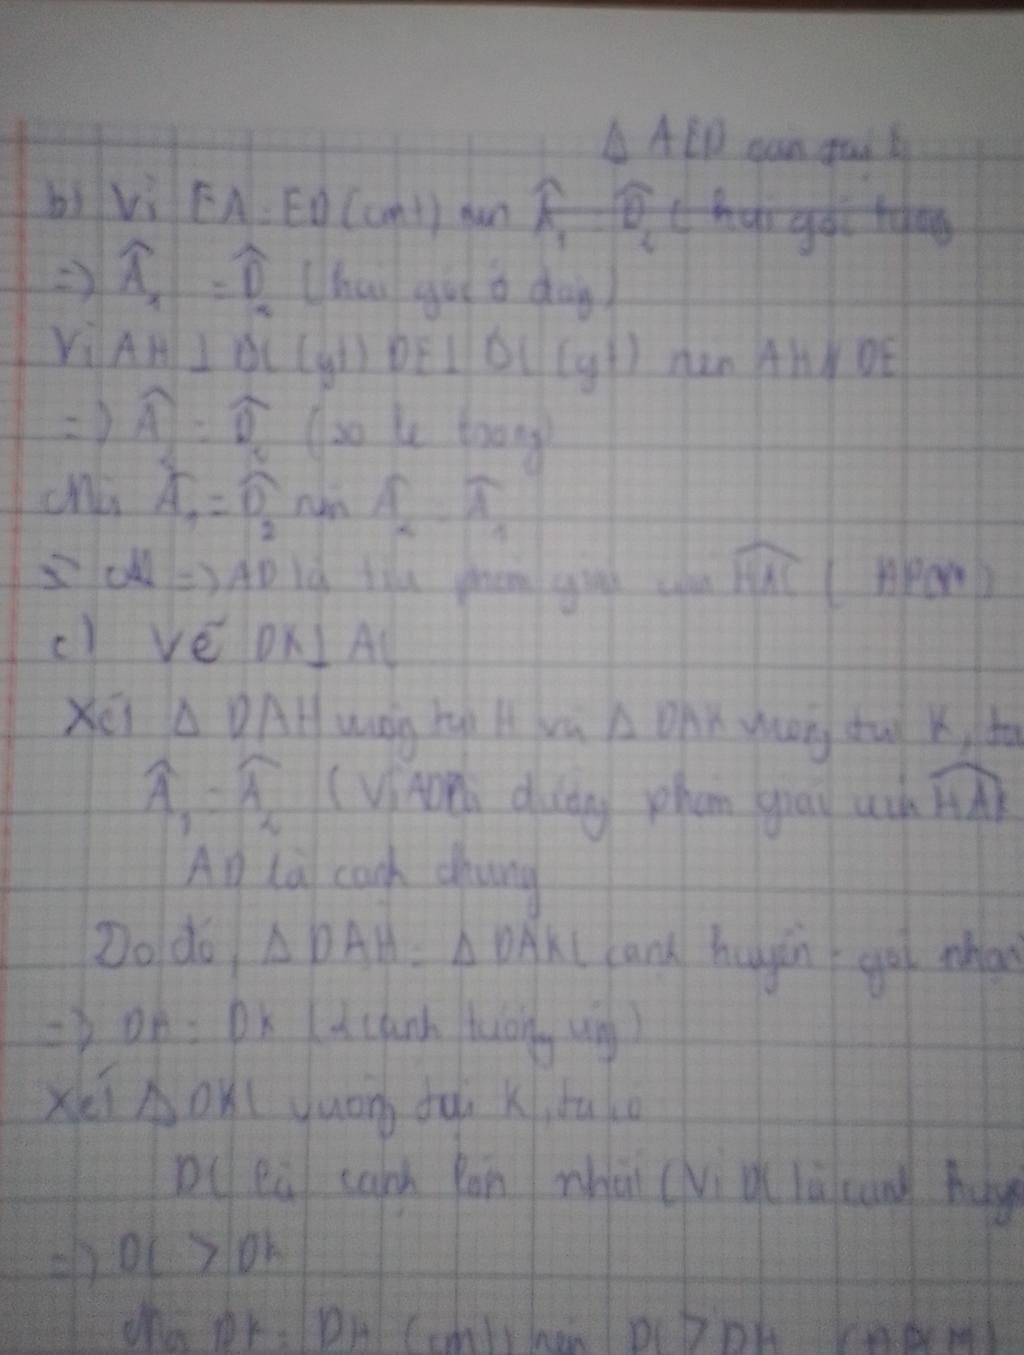 Δ AED cân tại E
b) Vì EA = ED (cmt) nên Â₁ = D̂₂ ( hai góc tương
=> Â₁ = D̂₂ (hai góc ở đáy)
Vì AH ⊥ DC (gt) DE ⊥ DC (gt) nên AH // DE
=> Â₂ = D̂₂ (so le trong)
Mà Â₁ = D̂₂ nên Â₂ = Â₁
=> AD là tia phân giác của HAC ( ĐPCM)
c) Vẽ DK ⊥ AC
Xét Δ DAH vuông tại H và Δ DAK vuông tại K, ta
Â₁ = Â₂ (Vì AD là đường phân giác của HAK
AD là cạnh chung
Do đó, Δ DAH = Δ DAK ( cạnh huyền - góc nhọn
=> DH = DK (2 cạnh tương ứng)
Xét Δ DKC vuông tại K, ta có
DC là cạnh lớn nhất (Vì DC là cạnh huyền
=> DC > DK
Mà DK = DH (cmt) nên DC > DH (ĐPCM)